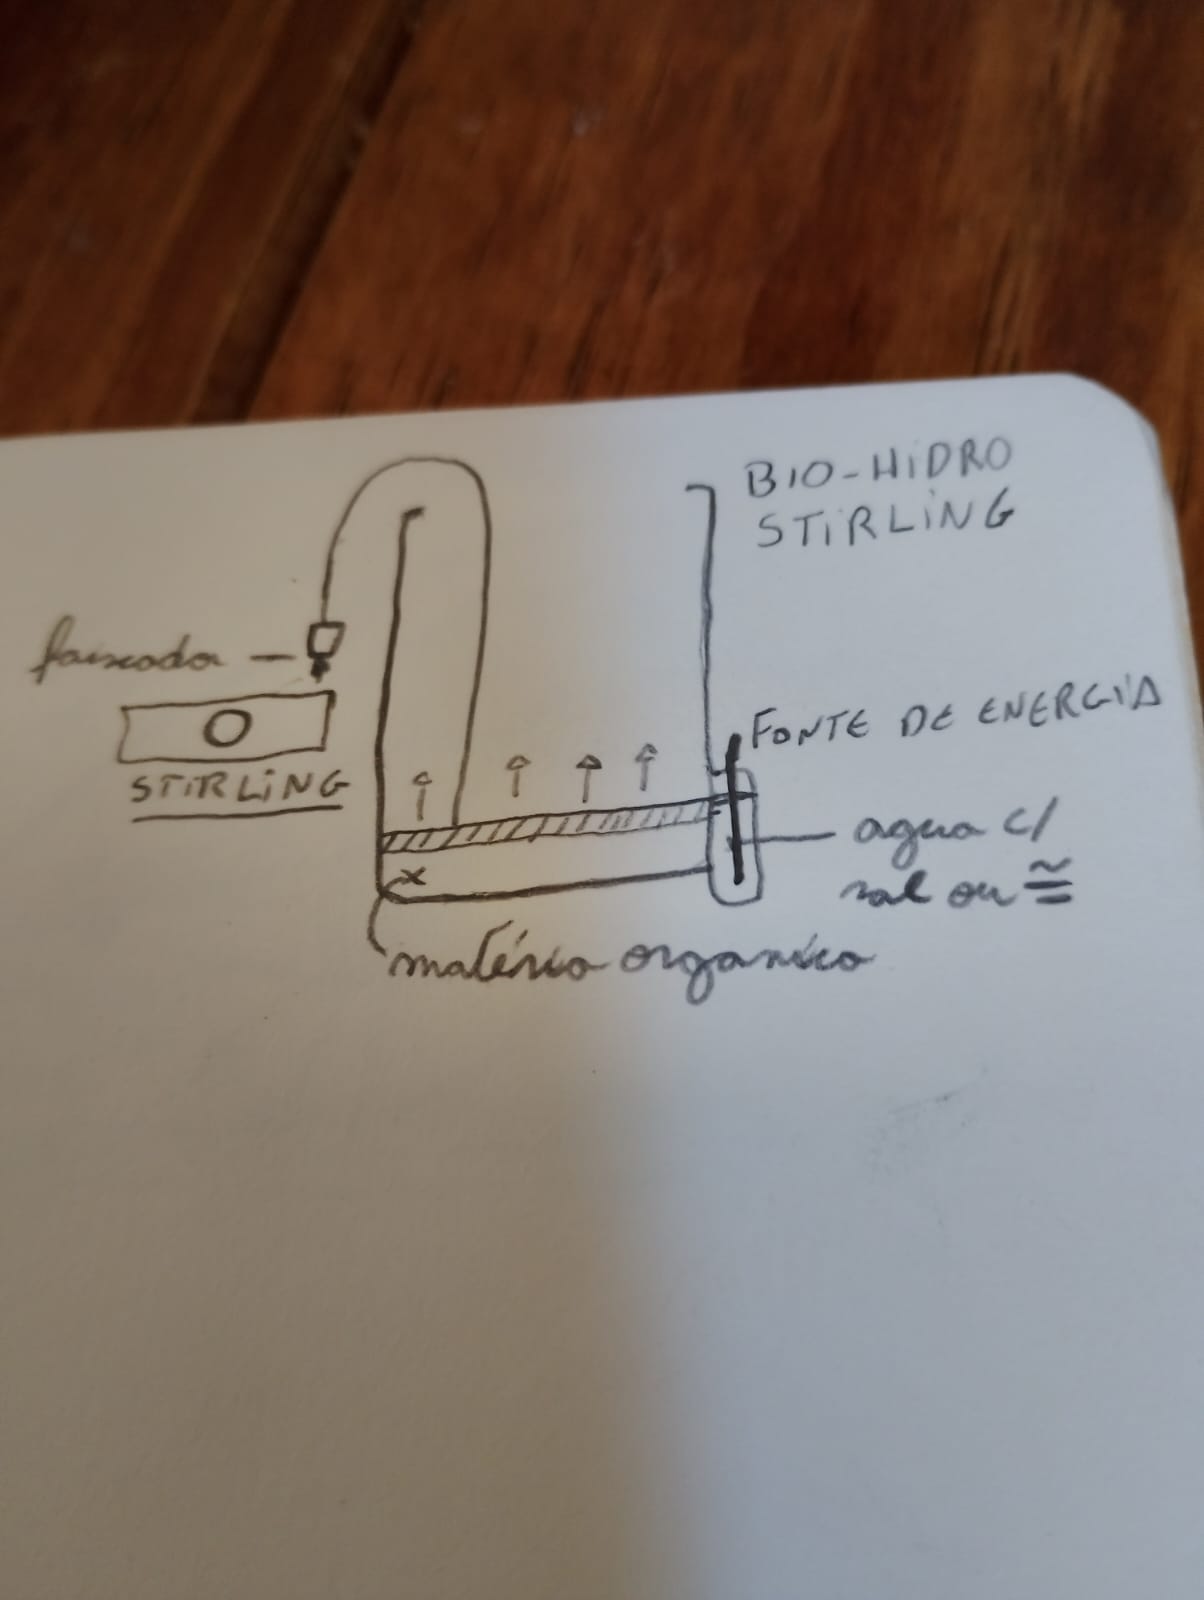 BIO-HIDRO
STIRLING
faiscador
STIRLING
FONTE DE ENERGIA
agua c/
sal ou ≅
x
matéria organica